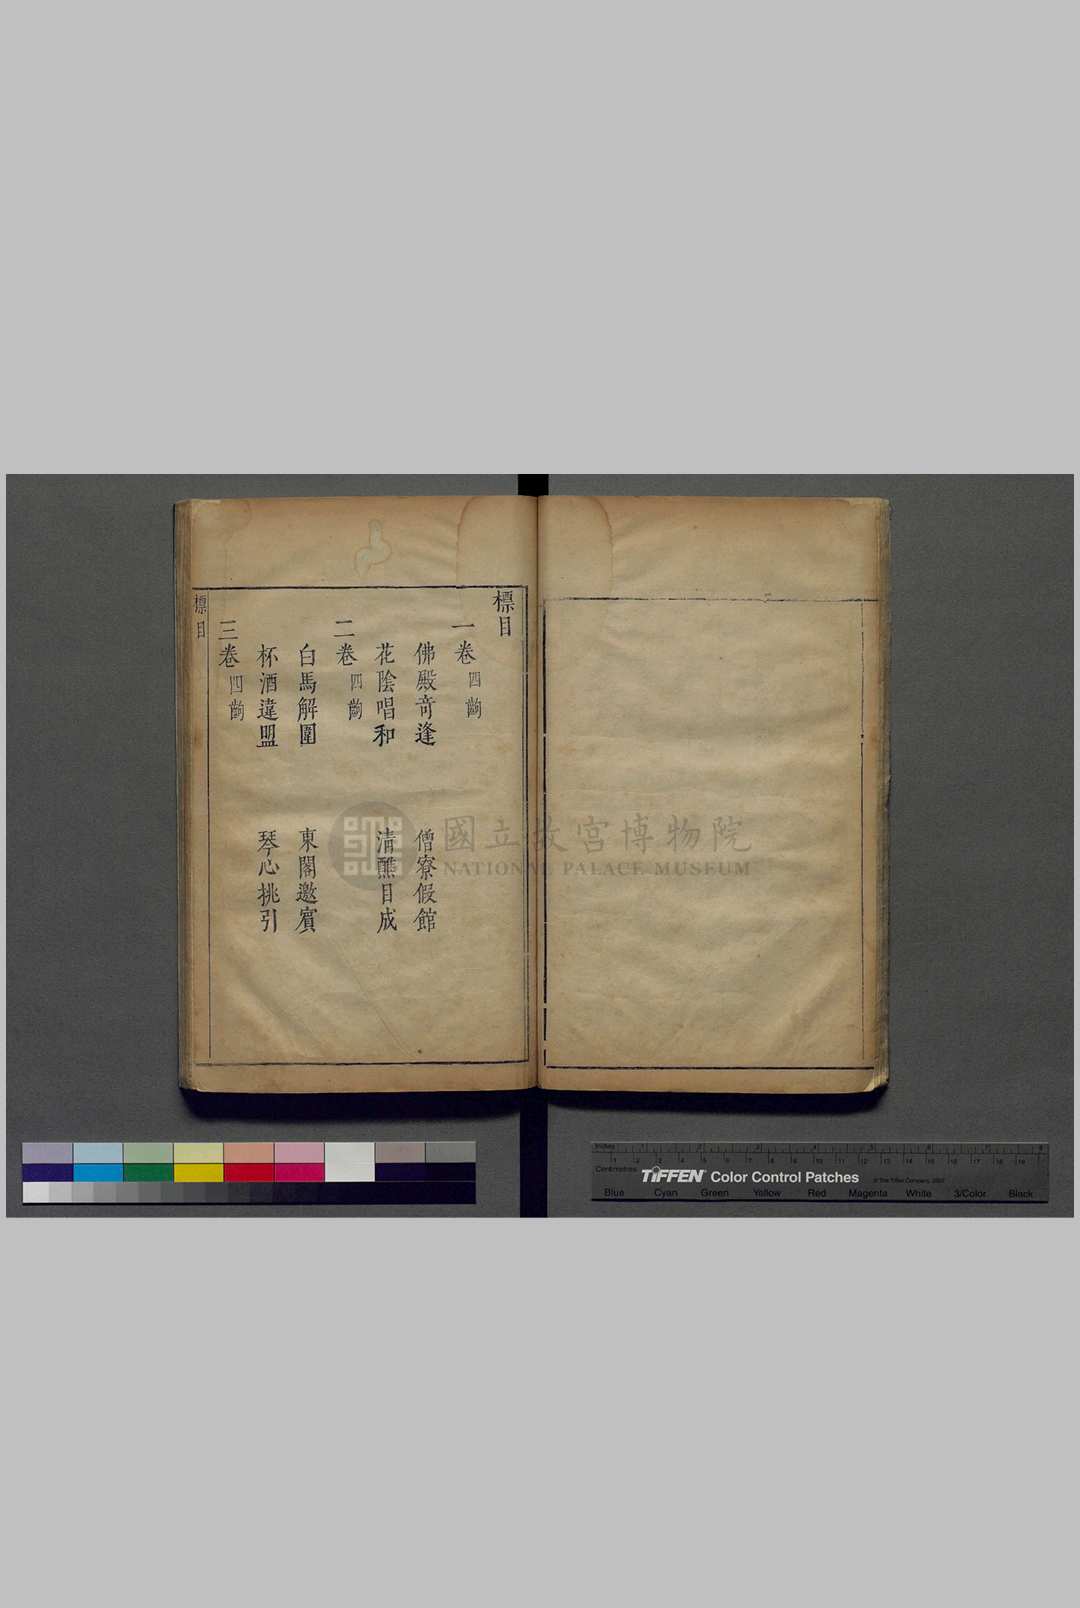 標目
一卷 四齣
佛殿奇逢 僧寮假館
花陰唱和 清醮目成
二卷 四齣
白馬解圍 東閣邀賓
杯酒違盟 琴心挑引
三卷 四齣
標目
國立故宮博物院
NATIONAL PALACE MUSEUM
Inches 1 2 3 4 5 6 7 8
Centimetres 1 2 3 4 5 6 7 8 9 10 11 12 13 14 15 16 17 18 19
TIFFEN Color Control Patches © The Tiffen Company, 2007
Blue Cyan Green Yellow Red Magenta White 3/Color Black